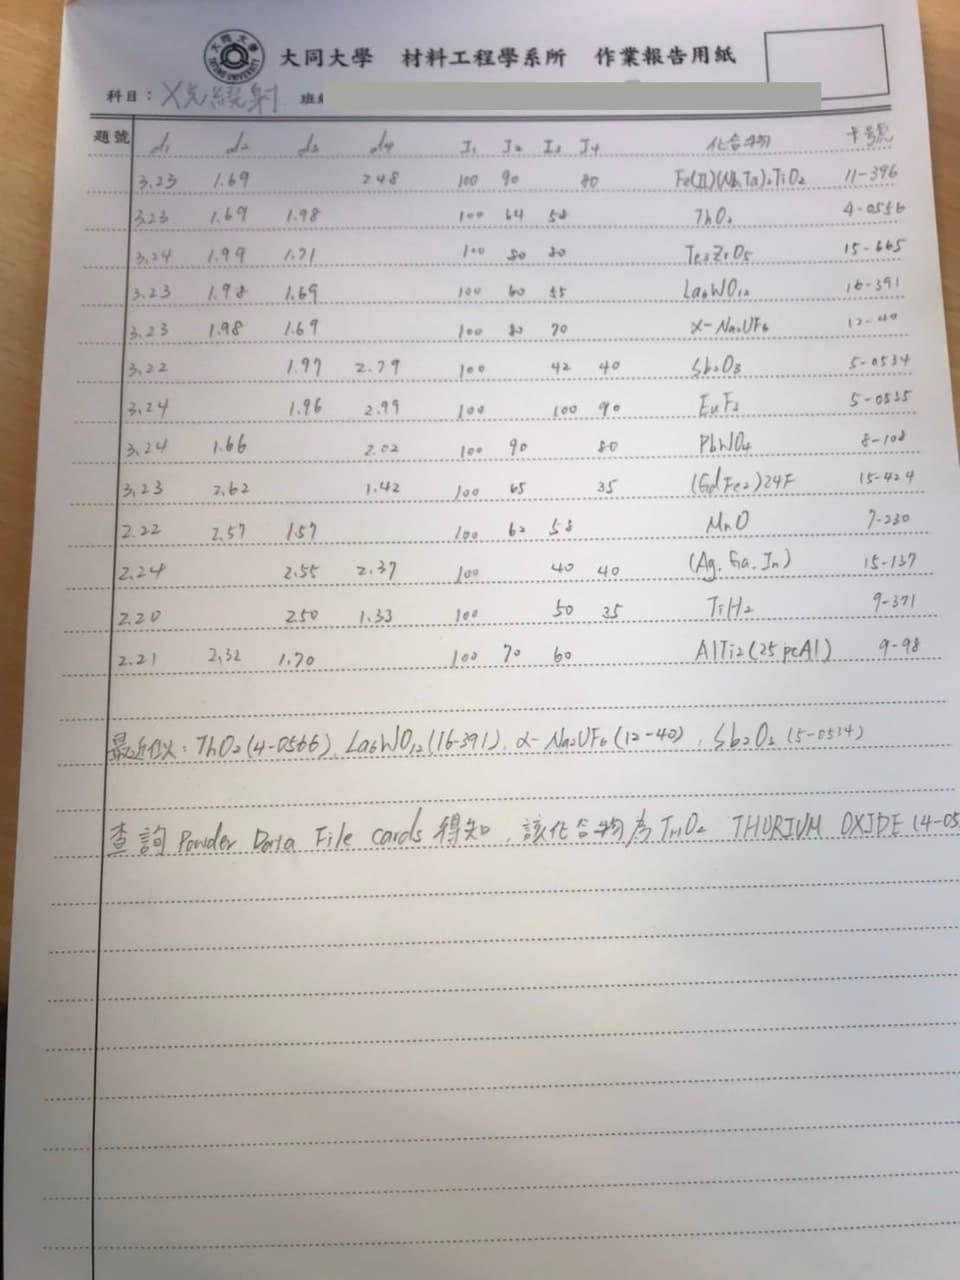 大同大學
TATUNG UNIVERSITY
大同大學 材料工程學系所 作業報告用紙
科目：X光繞射 班級
題號 d1 d2 d3 d4 I1 I2 I3 I4 化合物 卡號
3.23 1.69 2.48 100 90 80 Fe(II)(Nb,Ta)2TiO2 11-396
3.23 1.69 1.98 100 64 58 ThO2 4-0556
3.24 1.99 1.71 100 80 80 15-665
3.23 1.98 1.69 100 60 45 La6WO12 16-391
3.23 1.98 1.69 100 80 70 α-Na2UF6 12-40
3.22 1.97 2.79 100 42 40 Sb2O3 5-0534
3.24 1.96 2.99 100 100 90 EuF2 5-0535
3.24 1.66 2.02 100 90 80 PbWO4 8-108
3.23 2.62 1.42 100 65 35 (GdFe2)24F 15-424
2.22 2.57 1.57 100 62 58 MnO 7-230
2.24 2.55 2.37 100 40 40 (Ag.Ga.In) 15-137
2.20 2.50 1.33 100 50 35 TiH2 9-371
2.21 2.32 1.70 100 70 60 AlTi2(25pcAl) 9-98
最近似：ThO2(4-0566), La6WO12(16-391), α-Na2UF6(12-40), Sb2O3(5-0534)
查詢 Powder Data File cards 得知，該化合物為ThO2 THURIUM OXIDE(4-05